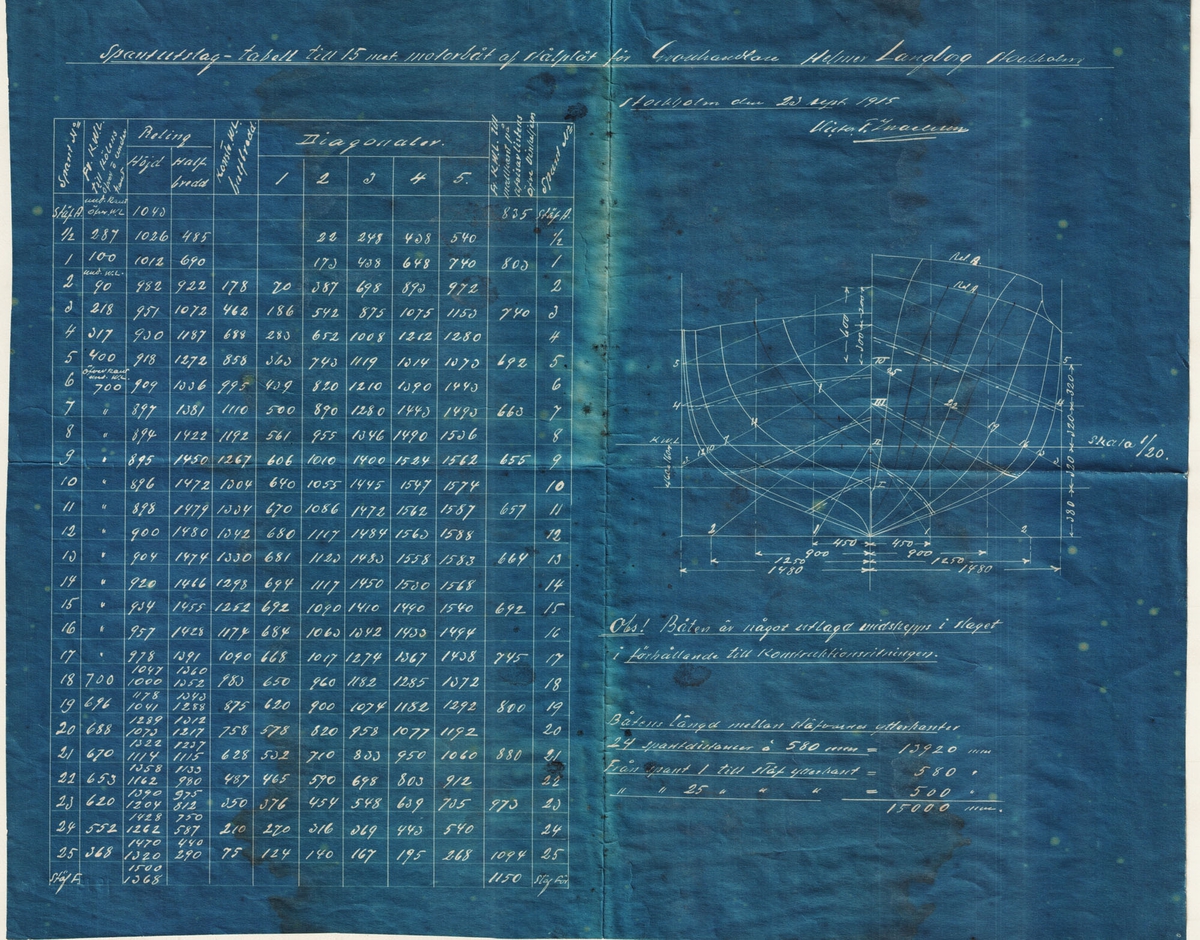 Spantutslag-tabell till 15 met. motorbåt af stålplåt för Grosshandlare Helmer Stockholm
Stockholm den 23 sept. 1915
Spant No
Fr. K.W.L. till kölens
Reling
Höjd Half bredd
Konstr. W.L. halfbredd
Diagonaler.
1 2 3 4 5.
Fr. K.W.L. till
Spant No
Stäf A. und. kant öfver W.L. 1043 835 Stäf A.
1/2 287 1026 485 22 248 438 540 1/2
1 100 1012 690 173 438 648 740 803 1
2 und. W.L. 90 982 922 178 70 387 698 893 972 2
3 218 951 1072 462 186 542 875 1075 1153 740 3
4 317 930 1187 688 283 652 1008 1212 1280 4
5 400 918 1272 858 363 743 1119 1314 1373 692 5
6 700 909 1336 995 439 820 1210 1390 1443 6
7 " 897 1381 1110 500 890 1280 1443 1493 663 7
8 " 894 1422 1192 561 955 1346 1490 1536 8
9 " 895 1450 1267 606 1010 1400 1524 1562 655 9
10 " 896 1472 1304 640 1055 1445 1547 1574 10
11 " 898 1479 1334 670 1086 1472 1562 1587 657 11
12 " 900 1480 1342 680 1117 1484 1563 1588 12
13 " 904 1474 1330 681 1123 1483 1558 1583 664 13
14 " 920 1466 1298 694 1117 1450 1530 1568 14
15 " 934 1455 1252 692 1090 1410 1490 1540 692 15
16 " 957 1428 1174 684 1063 1342 1433 1494 16
17 " 978 1391 1090 668 1017 1274 1367 1438 745 17
1047 1360
18 700 1000 1352 983 650 960 1182 1285 1372 18
1178 1343
19 696 1041 1288 875 620 900 1074 1182 1292 800 19
1289 1312
20 688 1073 1217 758 578 820 958 1077 1192 20
1322 1237
21 670 1114 1115 628 532 710 833 950 1060 880 21
1358 1133
22 653 1162 980 487 465 590 698 803 912 22
1390 975
23 620 1204 812 350 376 454 548 639 735 973 23
1428 750
24 552 1262 587 210 270 316 369 443 540 24
1470 440
25 368 1320 290 75 124 140 167 195 268 1094 25
1500
Stäf F. 1368 1150 Stäf för
Rel A.
Rel A.
600
300 200
K.W.L.
Skala 1/20.
380 320 320 320
450 450
900 900
1250 1250
1480 1480
Obs! Båten är något utlagd midskepps i slaget
i förhållande till Konstruktionsritningen.
Båtens längd mellan stäfvarnes ytterkanter
24 spantdistancer á 580 mm = 13920 mm
Från spant 1 till stäf ytterkant = 580 "
" " 25 " " " = 500 "
15000 mm.